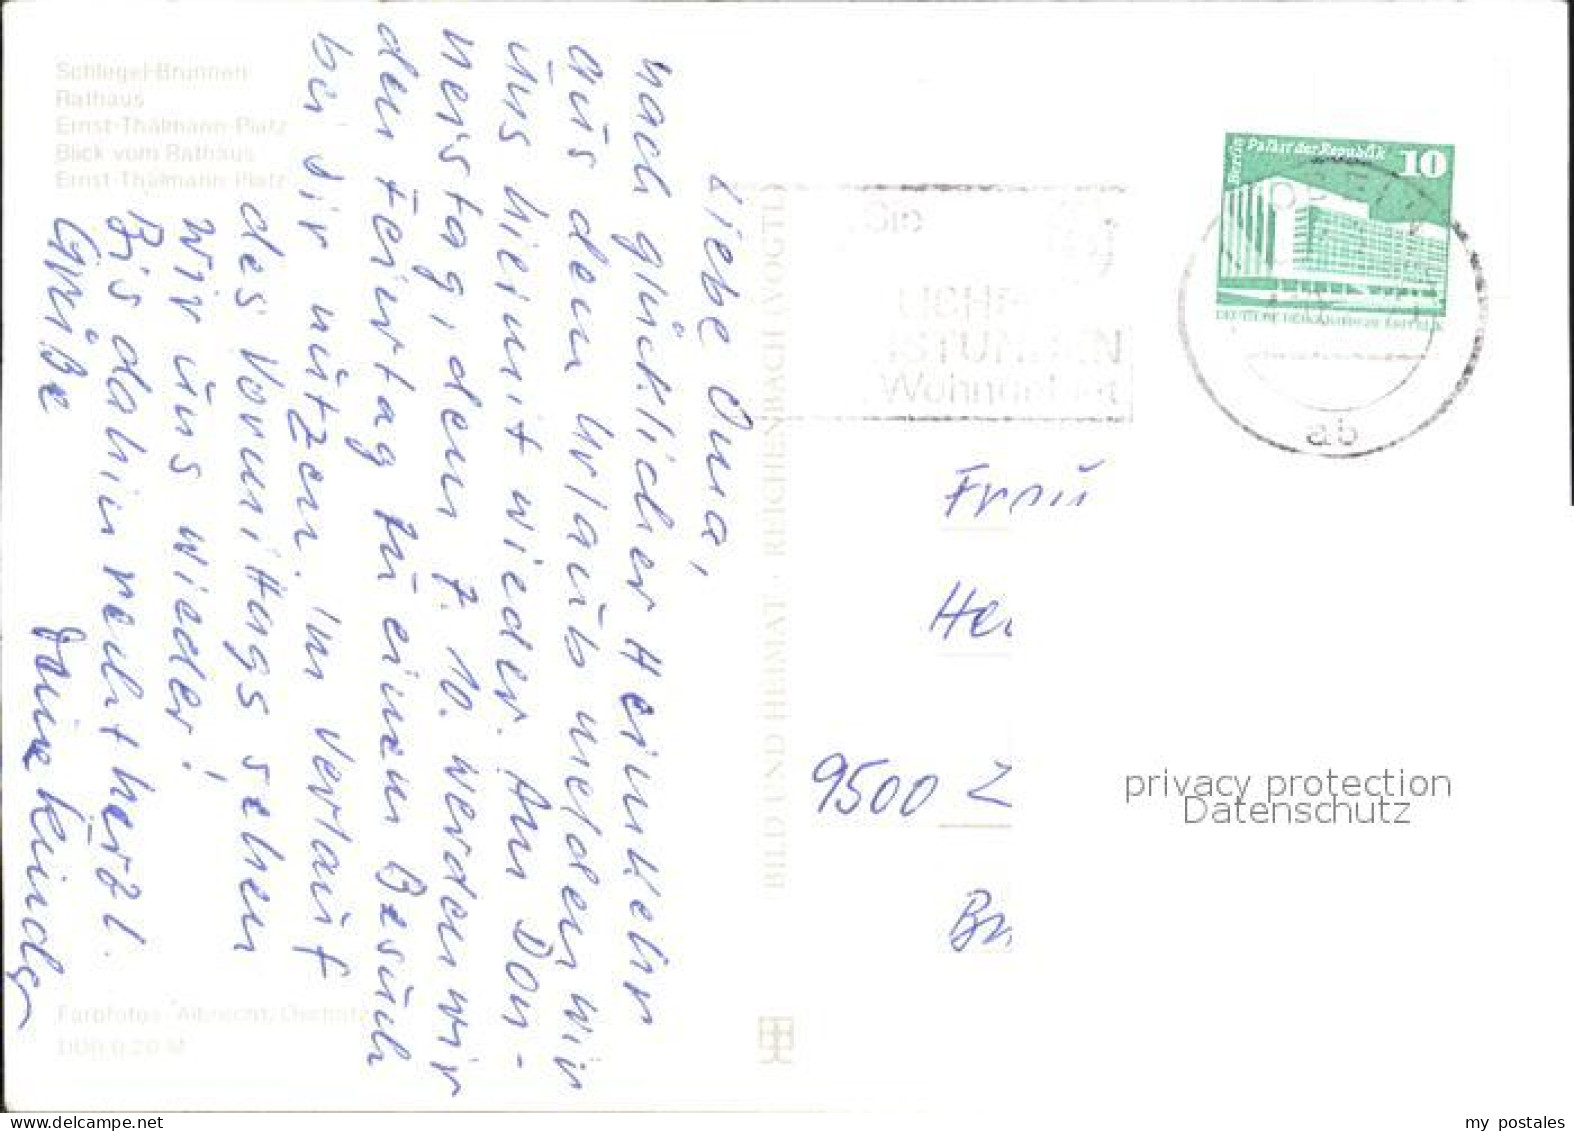 Schlegel-Brunnen
Rathaus
Ernst-Thälmann-Platz
Blick vom Rathaus
Ernst-Thälmann-Platz
Liebe Oma,
nach glücklicher Heimkehr
aus dem Urlaub melden wir
uns hiermit wieder. Am Don-
nerstag, dem 7. 10. werden wir
den Feiertag zu einem Besuch
bei Dir nutzen. Im Verlauf
des Vormittags sehen
wir uns wieder!
Bis dahin recht herzl.
Grüße
Deine Kinder
Farbfotos: Albrecht, Oschatz
DDR 0,20 M
BILD UND HEIMAT · REICHENBACH (VOGTL)
Berlin Palast der Republik 10
DEUTSCHE DEMOKRATISCHE REPUBLIK
Sie
ab
Frau
9500 Z
privacy protection
Datenschutz
my postales
www.delcampe.net